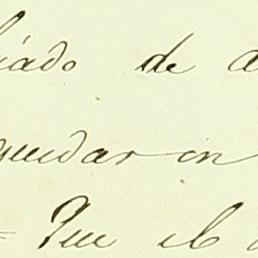 iado de a
quedar en
= Que el